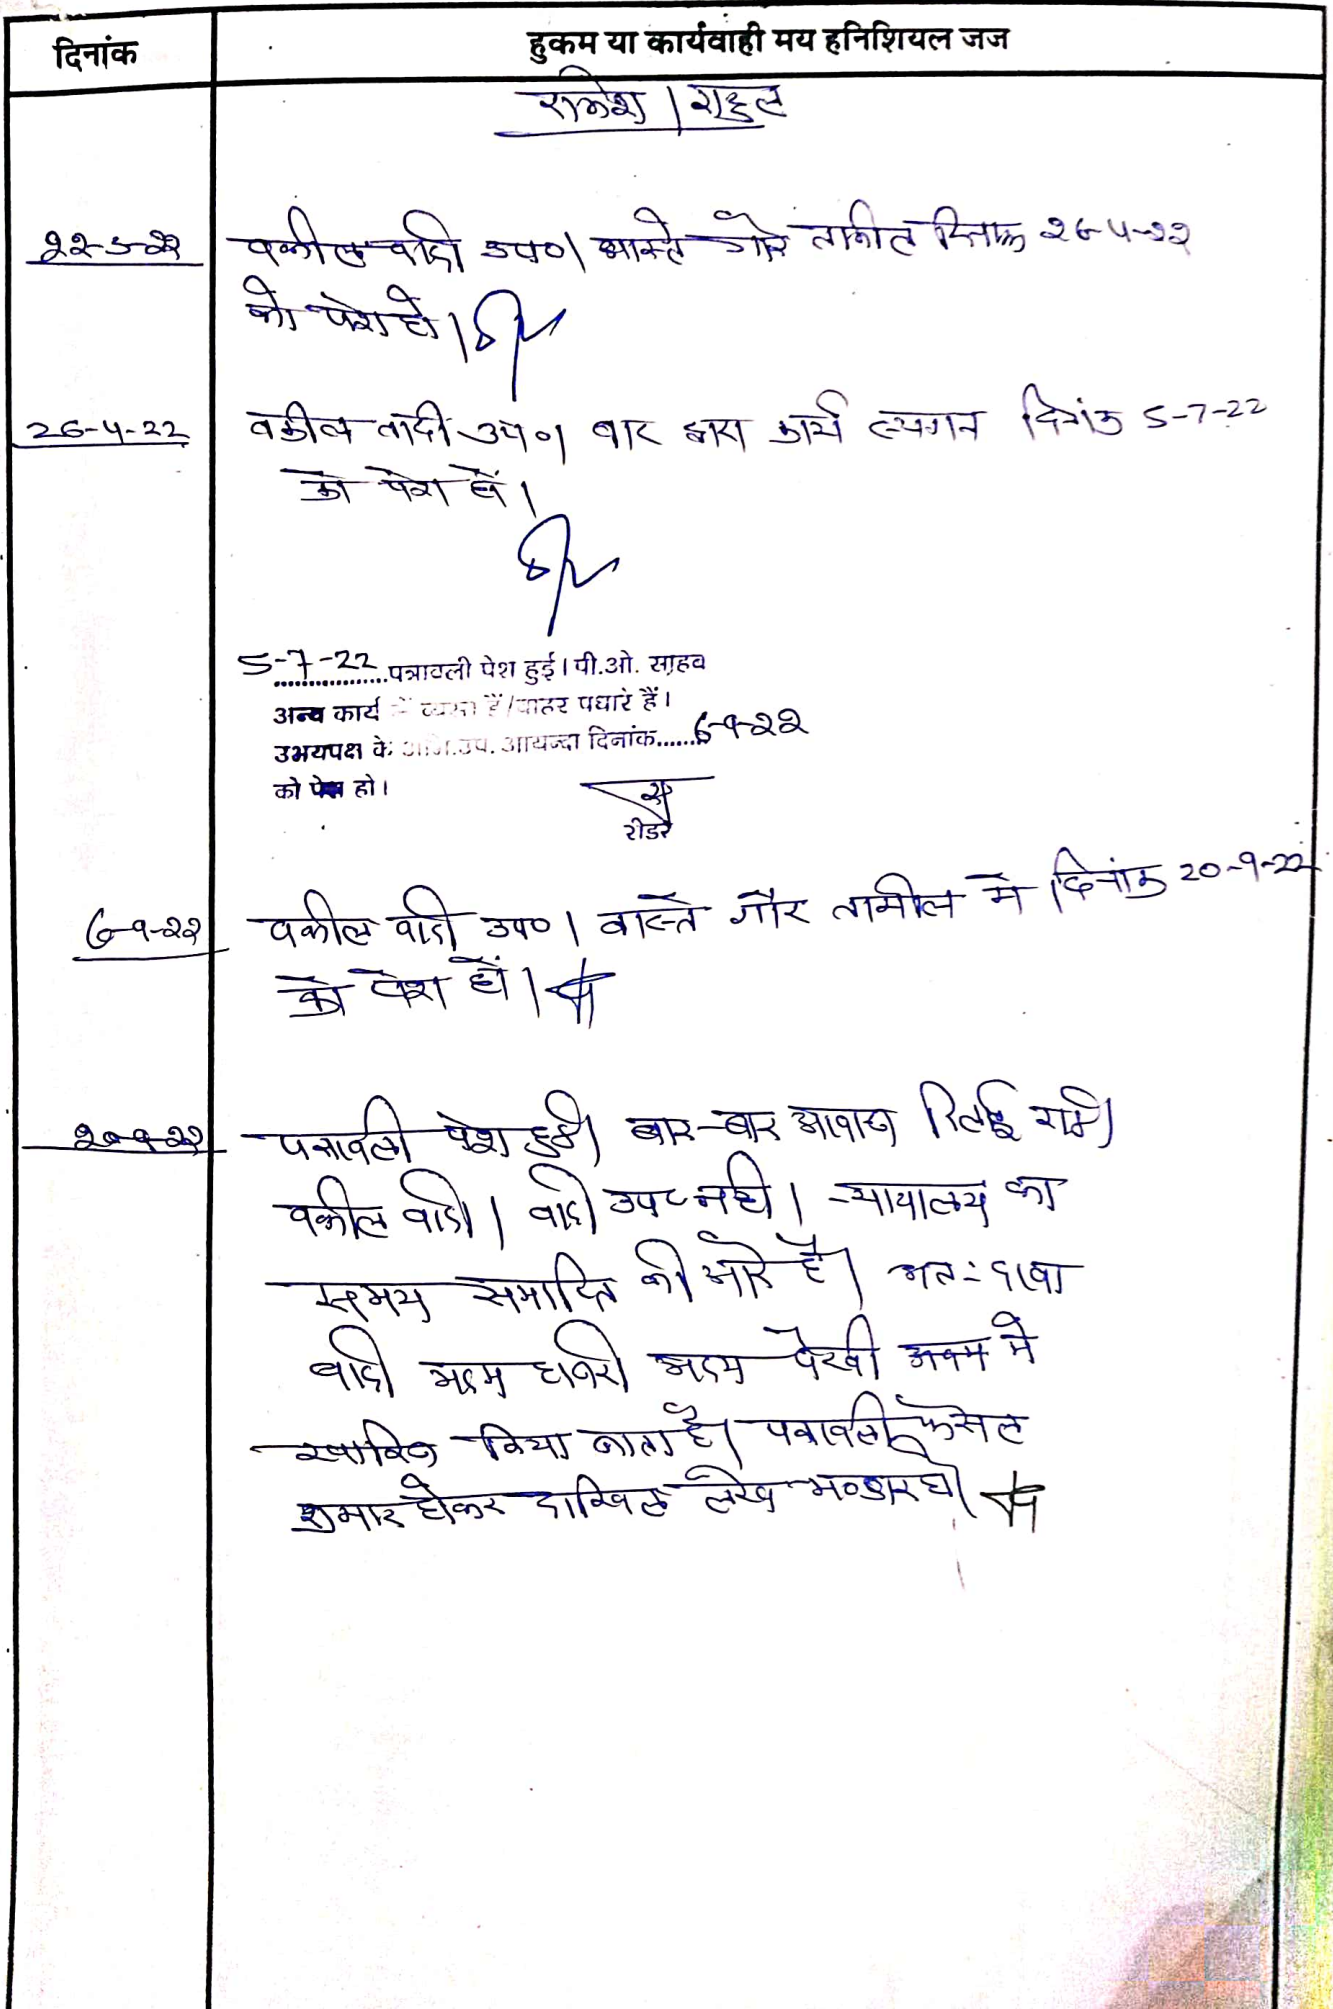 दिनांक
हुकम या कार्यवाही मय हनिशियल जज
राकेश / राहुल
22-3-22 वकील वादी उप०। वास्ते गौर तामील दिनांक 26-4-22
को पेश हो।
26-4-22 वकील वादी उप०। बार द्वारा कार्य स्थगन दिनांक 5-7-22
को पेश हों।
5-7-22 पत्रावली पेश हुई। पी.ओ. साहब
अन्य कार्य में व्यस्त हैं/बाहर पधारे हैं।
उभयपक्ष के अभि.उप. आयन्दा दिनांक......6-9-22
को पेश हो।
रीडर
6-9-22 वकील वादी उप०। वास्ते गौर तामील में दिनांक 20-9-22
को पेश हों।
20-9-22 पत्रावली पेश हुई। बार-बार आवाज दिलाई गई।
वकील वादी / वादी उप० नहीं। न्यायालय का
समय समाप्ति की ओर है। अतः दावा
वादी अदम हाजरी अदम पैरवी में
खारिज किया जाता है। पत्रावली फैसल
शुमार होकर दाखिल लेख भण्डार हो।